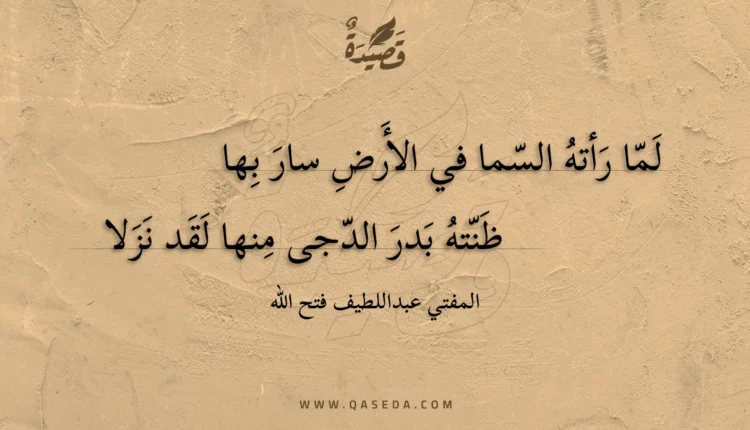 قَصِيدَةٌ
لَمّا رَأتهُ السّما في الأَرضِ سارَ بِها
ظَنّتهُ بَدرَ الدّجى مِنها لَقَد نَزَلا
المفتي عبداللطيف فتح الله
WWW.QASEDA.COM